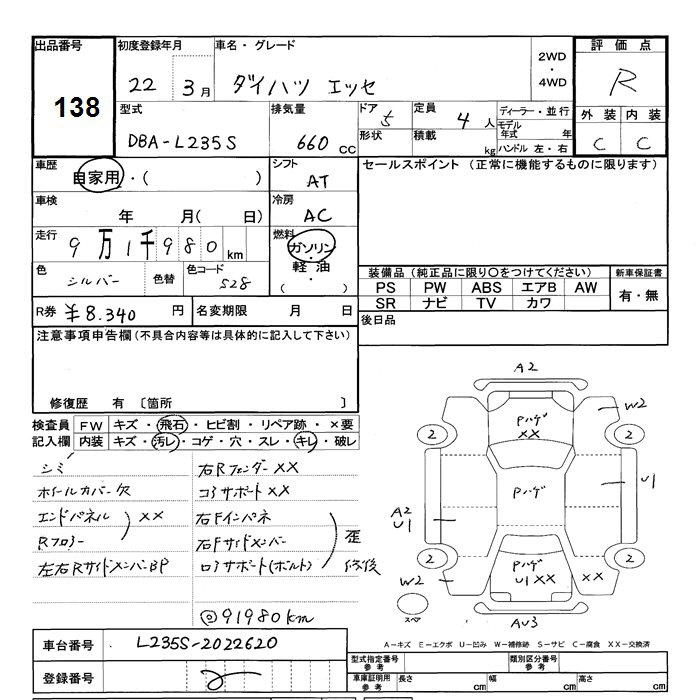 出品番号
138
初度登録年月
22 3月
車名・グレード
ダイハツ エッセ
2WD
・
4WD
評価点
R
型式
DBA-L235S
排気量
660 cc
ドア
5
形状
定員
4 人
積載
kg
ディーラー・並行
モデル年式 年
ハンドル 左・右
外装 内装
C C
車歴
自家用・( )
シフト
AT
セールスポイント (正常に機能するものに限ります)
車検
年 月( 日)
冷房
AC
走行
9万1千980km
燃料
ガソリン
・
軽油
( )
色
シルバー
色替
色コード
S28
装備品(純正品に限り○をつけてください)
新車保証書
PS PW ABS エアB AW
SR ナビ TV カワ
有・無
R券 ¥8.340 円
名変期限 月 日
後日品
注意事項申告欄(不具合内容等は具体的に記入して下さい)
修復歴 有 〔箇所 〕
検査員記入欄
FW キズ・飛石・ヒビ割・リペア跡・×要
内装 キズ・汚レ・コゲ・穴・スレ・キレ・破レ
シミ
ホイールカバー欠
エンドパネル ××
Rフロアー
左右RサイドメンバーBP
右Rフェンダー××
コアサポート××
右Fインパネ
右Fサイドメンバー
ロアサポート(ボルト)
歪
修復
◎91980km
A2
W2
Pハゲ
××
2
2
Pハゲ
U1
A2
U1
2
2
W2
Pハゲ
U1 ××
××
スペア
AU3
A-キズ E-エクボ U-凹み W-補修跡 S-サビ C-腐食 XX-交換済
車台番号
L235S-2022620
登録番号
型式指定番号
参考
類別区分番号
参考
車庫証明用
参考
長さ cm
幅 cm
高さ cm